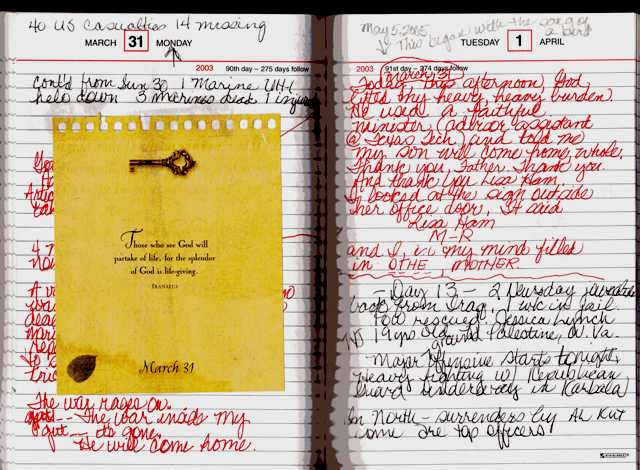 40 US Casualties 14 missing
MARCH 31 MONDAY
2003 90th day – 275 days follow
cont'd from Sun 30 1 Marine UH-1
helo down 3 marines dead 1
Those who see God will
partake of life, for the splendor
of God is life-giving.
IRANAEUS
March 31
The war rages on.
The war inside my
gut – it's gone.
He will come home.
May 5, 2005
This began with the song of
a bird
TUESDAY 1 APRIL
2003 91st day – 274 days follow
March 31
Today, this afternoon, God
lifted my heavy, heavy burden.
He used a faithful
minister, (advisor assistant
@ Texas Tech, and told me
my son will come home, whole.
Thank you, Father. Thank you.
And thank you Lisa Ham.
I looked at the sign outside
her office door. It said
Lisa Ham
M-R
and I, in my mind filled
in OTHE, MOTHER.
– Day 13 – 2 Newsday journalists
back from Iraq, 1 wk in jail.
POW rescued, Jessica Lynch
19 yrs old, Palestine, W. Va.
ground
– Major offensive starts tonight,
Heavy fighting w/ Republican
Guard underway in Karbala
In North – surrenders by AL KUT
some are top officers!